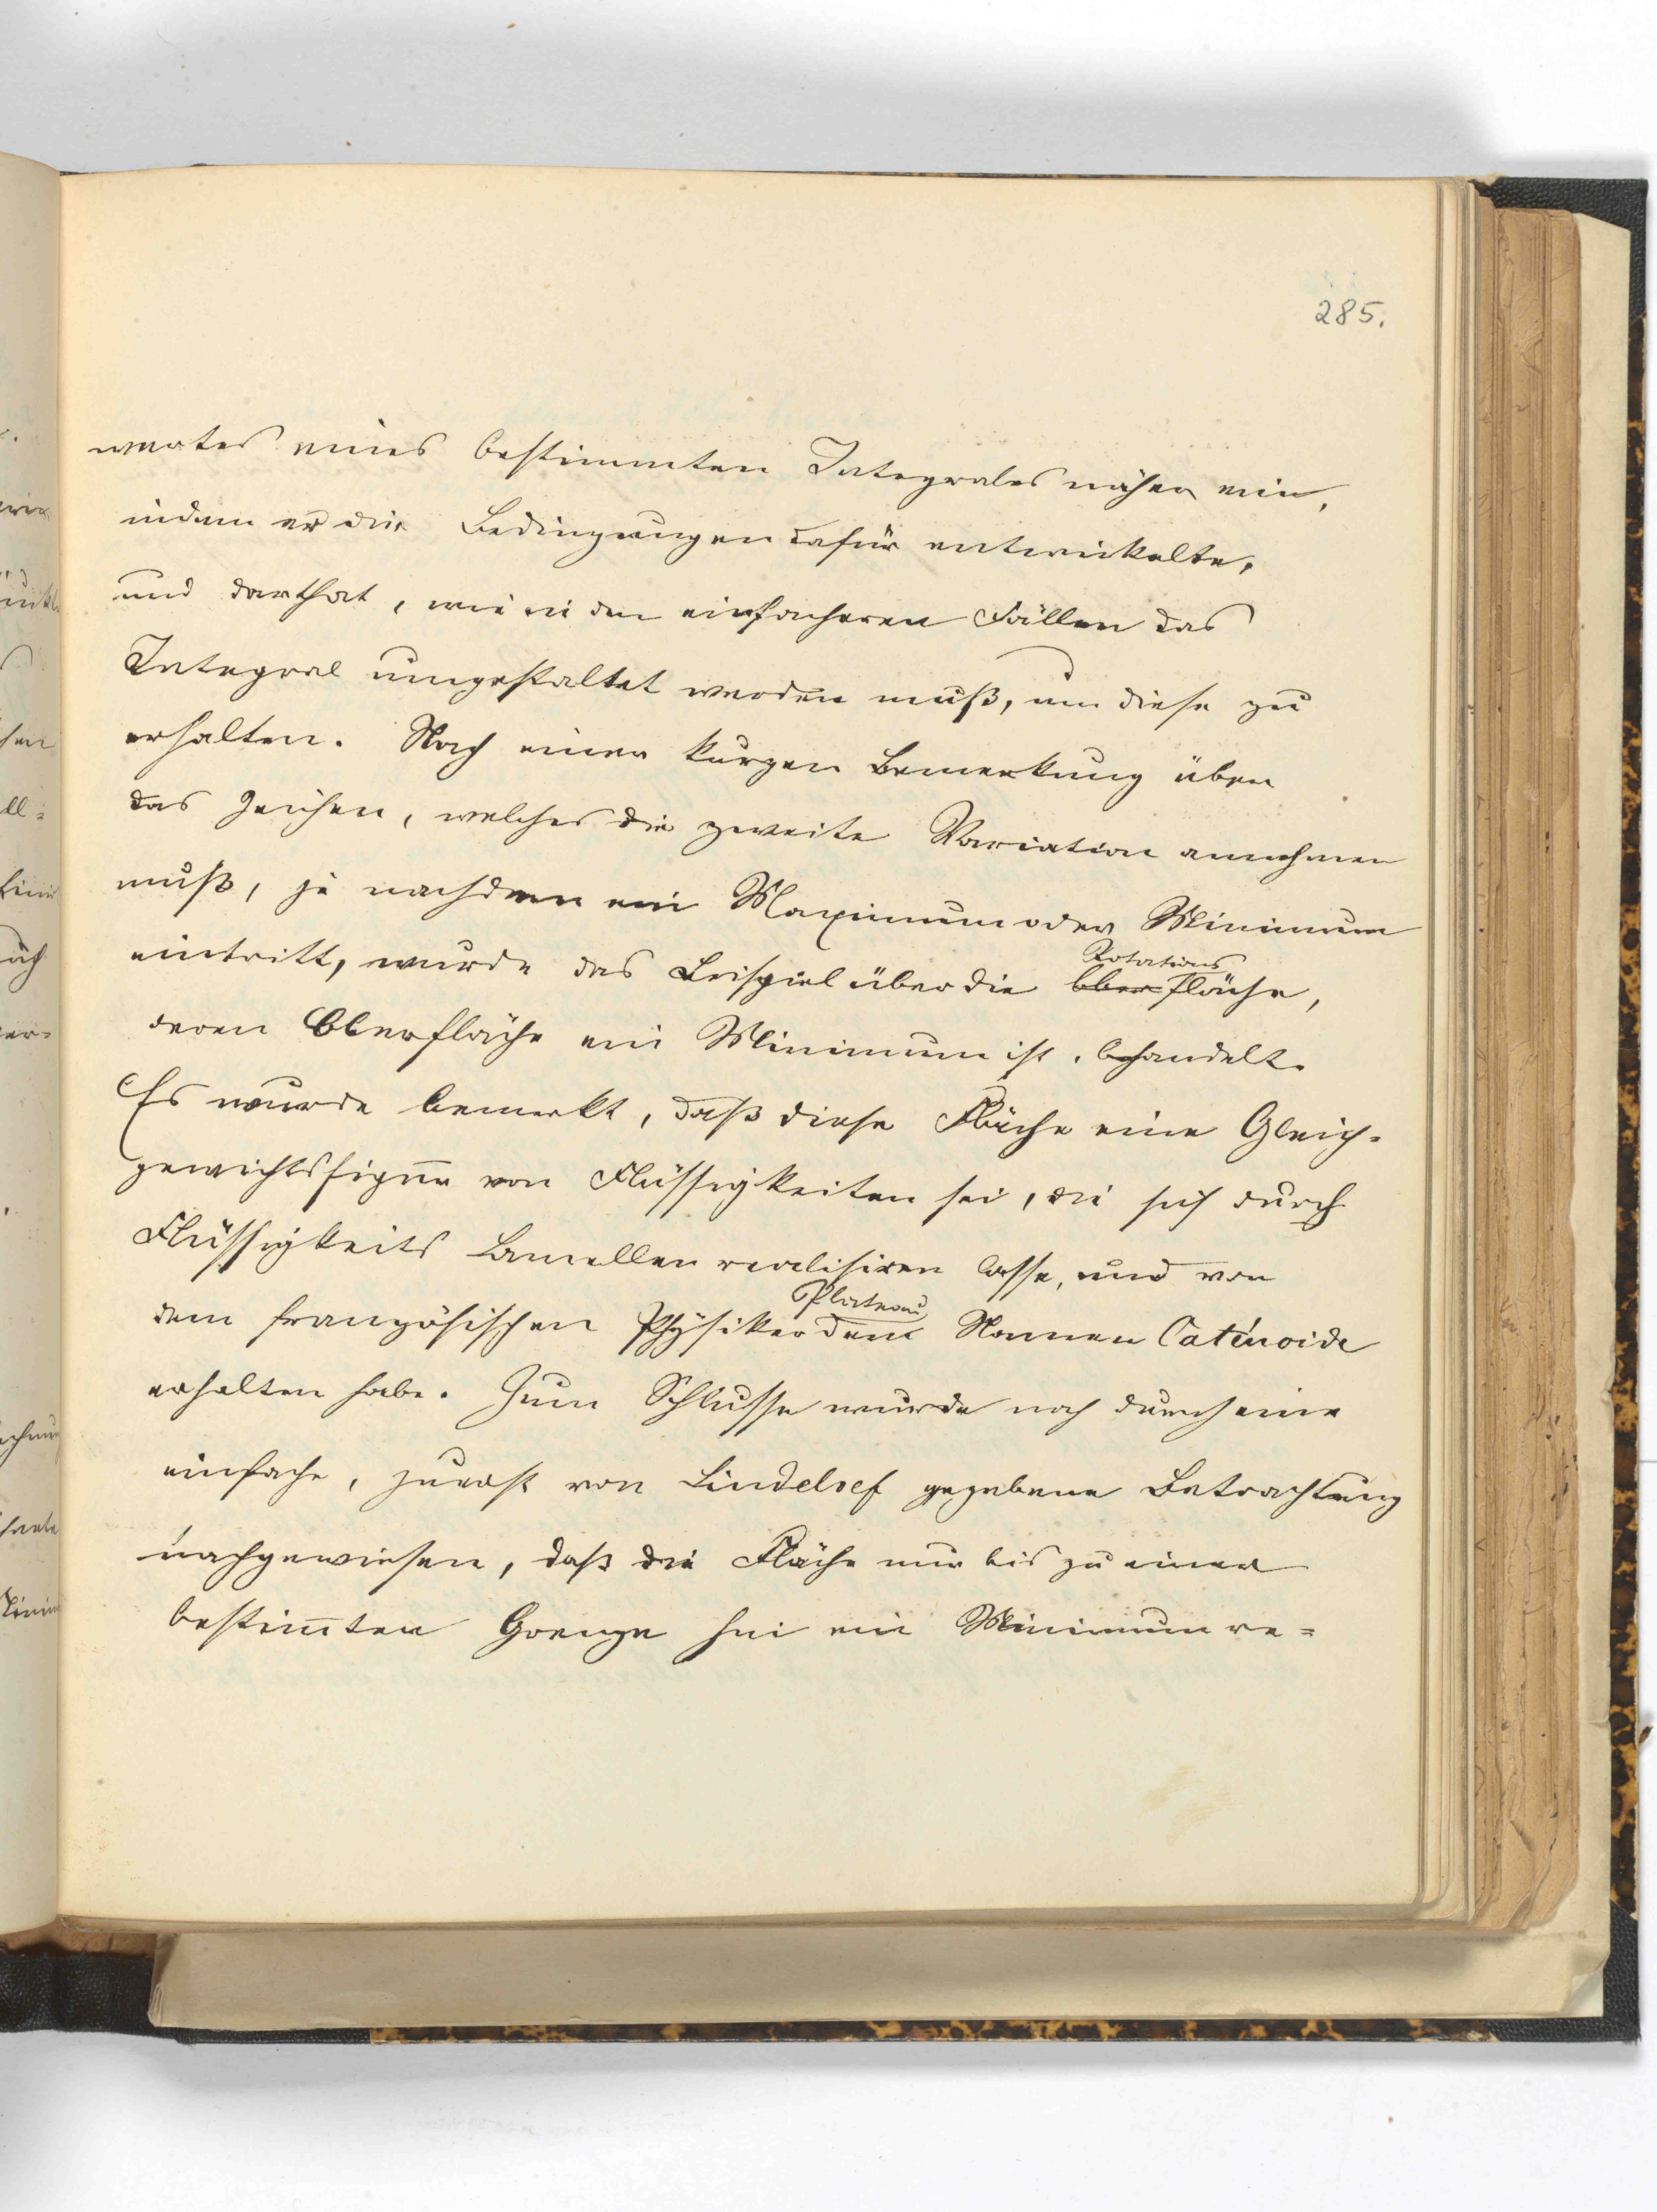 285.
wertes eines bestimmten Integrales näher ein,
indem er die Bedingungen dafür entwickelte,
und darthat, wie in den einfacheren Fällen das
Integral umgestaltet werden muß, um diese zu
erhalten. Nach einer kurzen Bemerkung über
das Zeichen, welches die zweite Variation annehmen
muß, je nachdem ein Maximum oder Minimum
Rotations
eintritt, wurde das Beispiel über die Oberfläche,
deren Oberfläche ein Minimum ist, behandelt.
Es wurde bemerkt, daß diese Fläche eine Gleich-
gewichtsfigur von Flüssigkeiten sei, die sich durch
Flüssigkeits Lamellen realisiren lasse, und von
Plateau
dem französischen Physiker den Namen Caténoide
erhalten habe. Zum Schlusse wurde noch durch eine
einfache, zuerst von Lindeloef gegebene Betrachtung
nachgewiesen, daß die Fläche nur bis zu einer
bestim̄ten Grenze hin ein Minimum re=